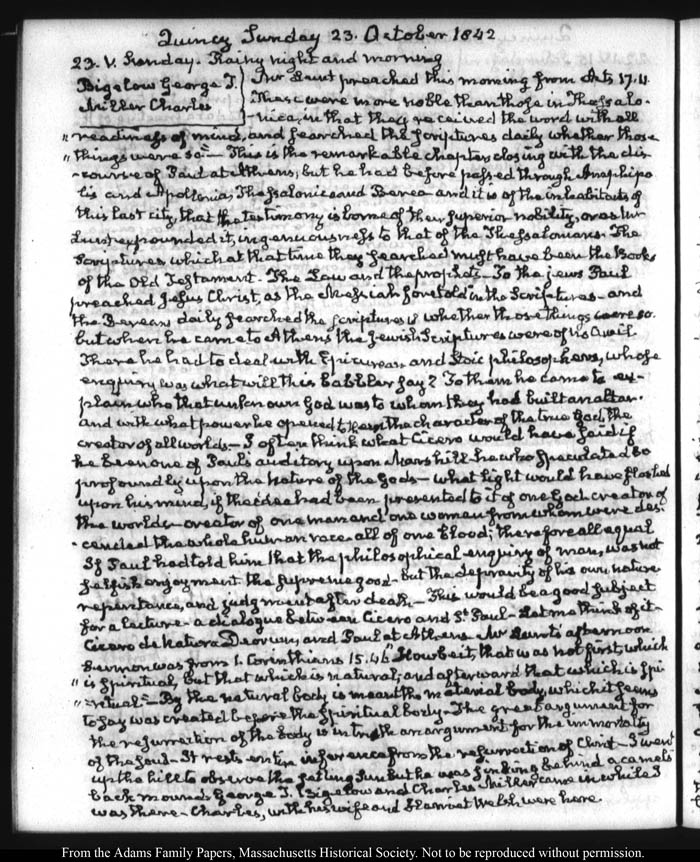 Quincy Sunday 23. October 1842
23. V. Sunday. Rainy night and morning
Bigelow George T.
Miller Charles
Mr Lunt preached this morning from Acts 17.11.
These were more noble than those in Thessalo-
-nica, in that they received the word with all
"readiness of mind, and searched the Scriptures daily whether those
"things were so"— This is the remarkable chapter closing with the dis-
-course of Paul at Athens, but he had before passed through Amphipo
lis and Apollonia, Thessalonica and Berea and it is of the inhabitants of
this last city, that the testimony is borne of their superior nobility, or as Mr
Lunt expounded it, ingenuousness to that of the Thessalonians. The
Scriptures which at that time they searched must have been the Books
of the Old Testament. The Law and the prophets— To the jews Paul
preached Jesus Christ, as the Messiah foretold in the Scriptures— and
the Bereans daily searched the scriptures whether those things were so.
but when he came to Athens the Jewish Scriptures were of no avail.
There he had to deal with Epicurean and Stoic philosophers, whose
enquiry was what will this babbler say? To them he came to ex-
plain who that unknown God was to whom they had built an altar.
and with what power he opened to them the character of the true God, the
creator of all worlds— I often think what Cicero would have said if
he been one of Paul's auditory upon Mars hill. he who speculated so
profoundly upon the Nature of the Gods— what light would have flashed
upon his mind, if the idea had been presented to it of one God creator of
the worlds— creator of one man and one woman from whom were des-
-cended the whole human race all of one blood; therefore all equal
If Paul had told him that the philosophical enquiry of man, was not
selfish enjoyment the supreme good— but the depravity of his own nature
repentance, and judgment after death.— This would be a good subject
for a lecture— a dialogue between Cicero and St. Paul— Let me think of it—
Cicero de Natura Deorum, and Paul at Athens— Mr Lunt's afternoon
Sermon was from 1. Corinthians 15.46 "Howbeit, that was not first, which
"is spiritual, but that which is natural; and afterward that which is spi
"-ritual"— By the natural body is meant the material body, which it seems
to say was created before the spiritual body— The great argument for
the resurrection of the body is in truth an argument for the immortality
of the soul— It rests inference from the resurrection of Christ— I went
up the hill to observe the setting Sun but he was sinking behind a camel's
back mound. George T. Bigelow and Charles Miller came in while I
was there— Charles, with his wife and Harriet Welsh were here.
From the Adams Family Papers, Massachusetts Historical Society. Not to be reproduced without permission.